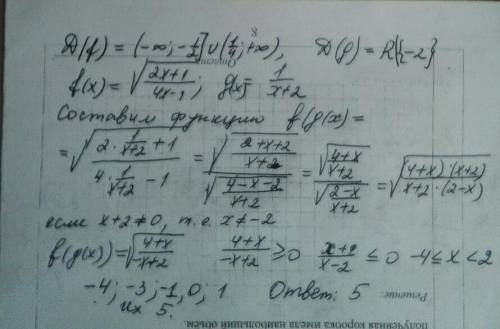 8
D(f) = (-∞; -1/2] ∪ (1/4; +∞), D(g) = R\{-2}
f(x) = √((2x+1)/(4x-1)); g(x) = 1/(x+2)
Составим функцию f(g(x) =
= √((2·1/(x+2) + 1)/(4·1/(x+2) - 1)) = √((2+x+2)/(x+2))/√((4-x-2)/(x+2)) = √((4+x)/(x+2))/√((2-x)/(x+2)) = √((4+x)·(x+2)/(x+2·(2-x)))
если x+2≠0, т.е. x≠-2
f(g(x)) = √((4+x)/(-x+2)) (4+x)/(-x+2) ≥ 0 (x+4)/(x-2) ≤ 0 -4 ≤ x < 2
-4; -3; -1, 0; 1 Ответ: 5
их 5.
Решение:
полученная коробка имела наибольший объем.